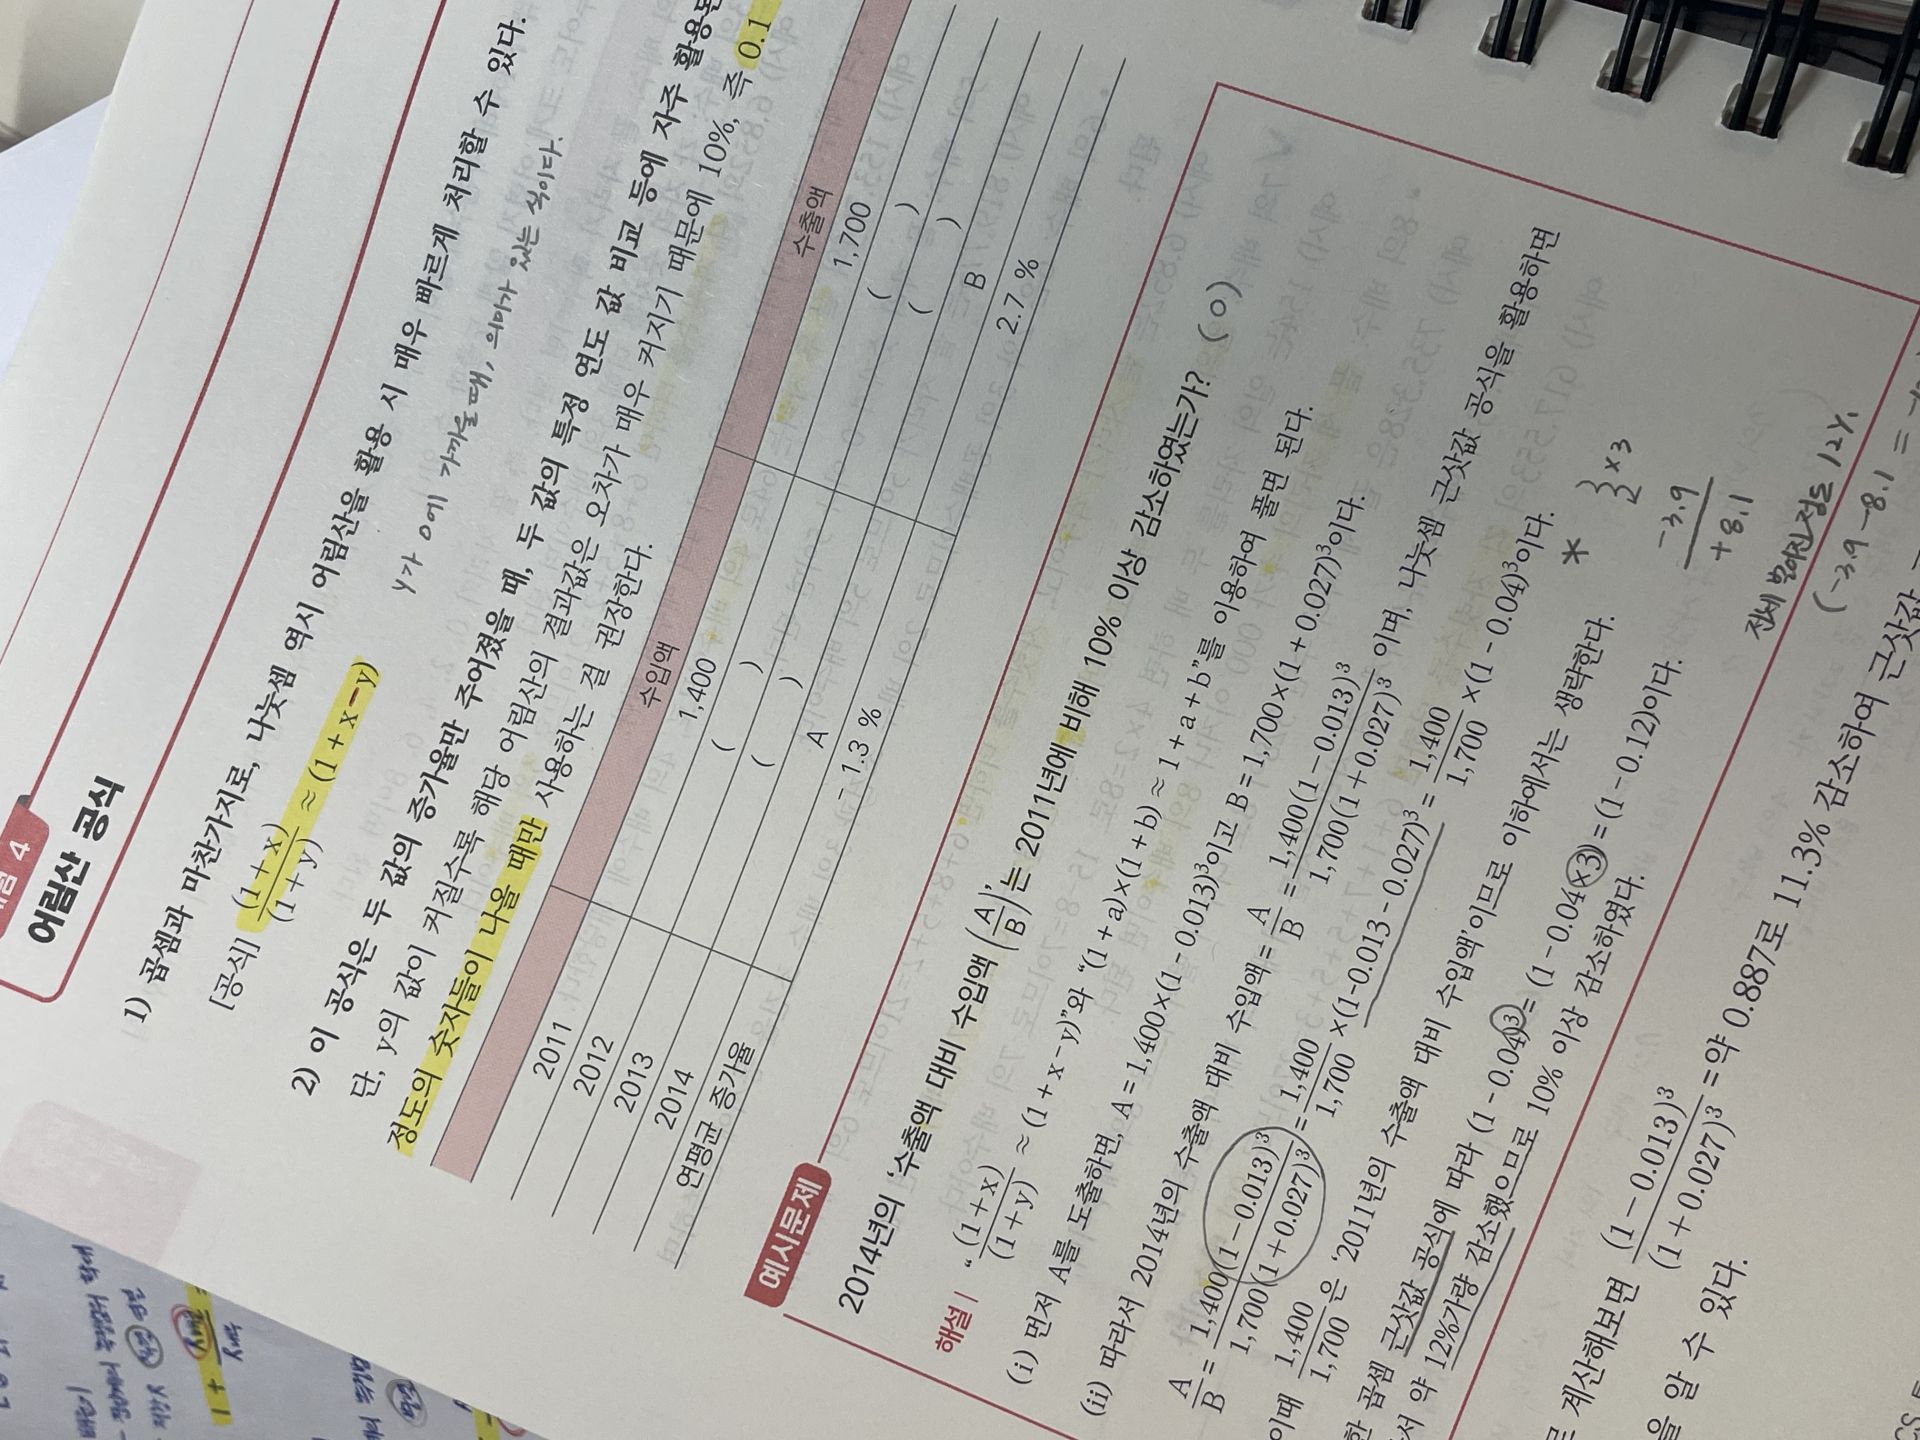 4
어림산 공식
1) 곱셈과 마찬가지로, 나눗셈 역시 어림산을 활용 시 매우 빠르게 처리할 수 있다.
[공식] (1+x)/(1+y) ≈ (1+x-y)
y가 0에 가까울 때, 의미가 있는 식이다.
2) 이 공식은 두 값의 증가율만 주어졌을 때, 두 값의 특정 연도 값 비교 등에 자주 활용된
단, y의 값이 커질수록 해당 어림산의 결과값은 오차가 매우 커지기 때문에 10%, 즉 0.1
정도의 숫자들이 나올 때만 사용하는 걸 권장한다.
수입액 수출액
2011 1,400 1,700
2012 ( ) ( )
2013 ( ) ( )
2014 A B
연평균 증가율 -1.3 % 2.7 %
예시문제
2014년의 '수출액 대비 수입액 (A/B)'는 2011년에 비해 10% 이상 감소하였는가? (O)
해설 | "(1+x)/(1+y) ≈ (1+x-y)"와 "(1+a)×(1+b) ≈ 1+a+b"를 이용하여 풀면 된다.
(i) 먼저 A를 도출하면, A = 1,400×(1-0.013)³이고 B = 1,700×(1+0.027)³이다.
(ii) 따라서 2014년의 수출액 대비 수입액 = A/B = 1,400(1-0.013)³/1,700(1+0.027)³ 이며, 나눗셈 근삿값 공식을 활용하면
A/B = 1,400(1-0.013)³/1,700(1+0.027)³ = 1,400/1,700 ×(1-0.013-0.027)³ = 1,400/1,700 ×(1-0.04)³이다.
이때 1,400/1,700 은 '2011년의 수출액 대비 수입액'이므로 이하에서는 생략한다.
한 곱셈 근삿값 공식에 따라 (1-0.04)³ = (1-0.04×3) = (1-0.12)이다.
서 약 12%가량 감소했으므로 10% 이상 감소하였다.
* } ×3
-3.9
+8.1
전체 떨어진 정도 12%
(-3.9 -8.1 =
로 계산해보면 (1-0.013)³/(1+0.027)³ = 약 0.887로 11.3% 감소하여 근삿값
을 알 수 있다.